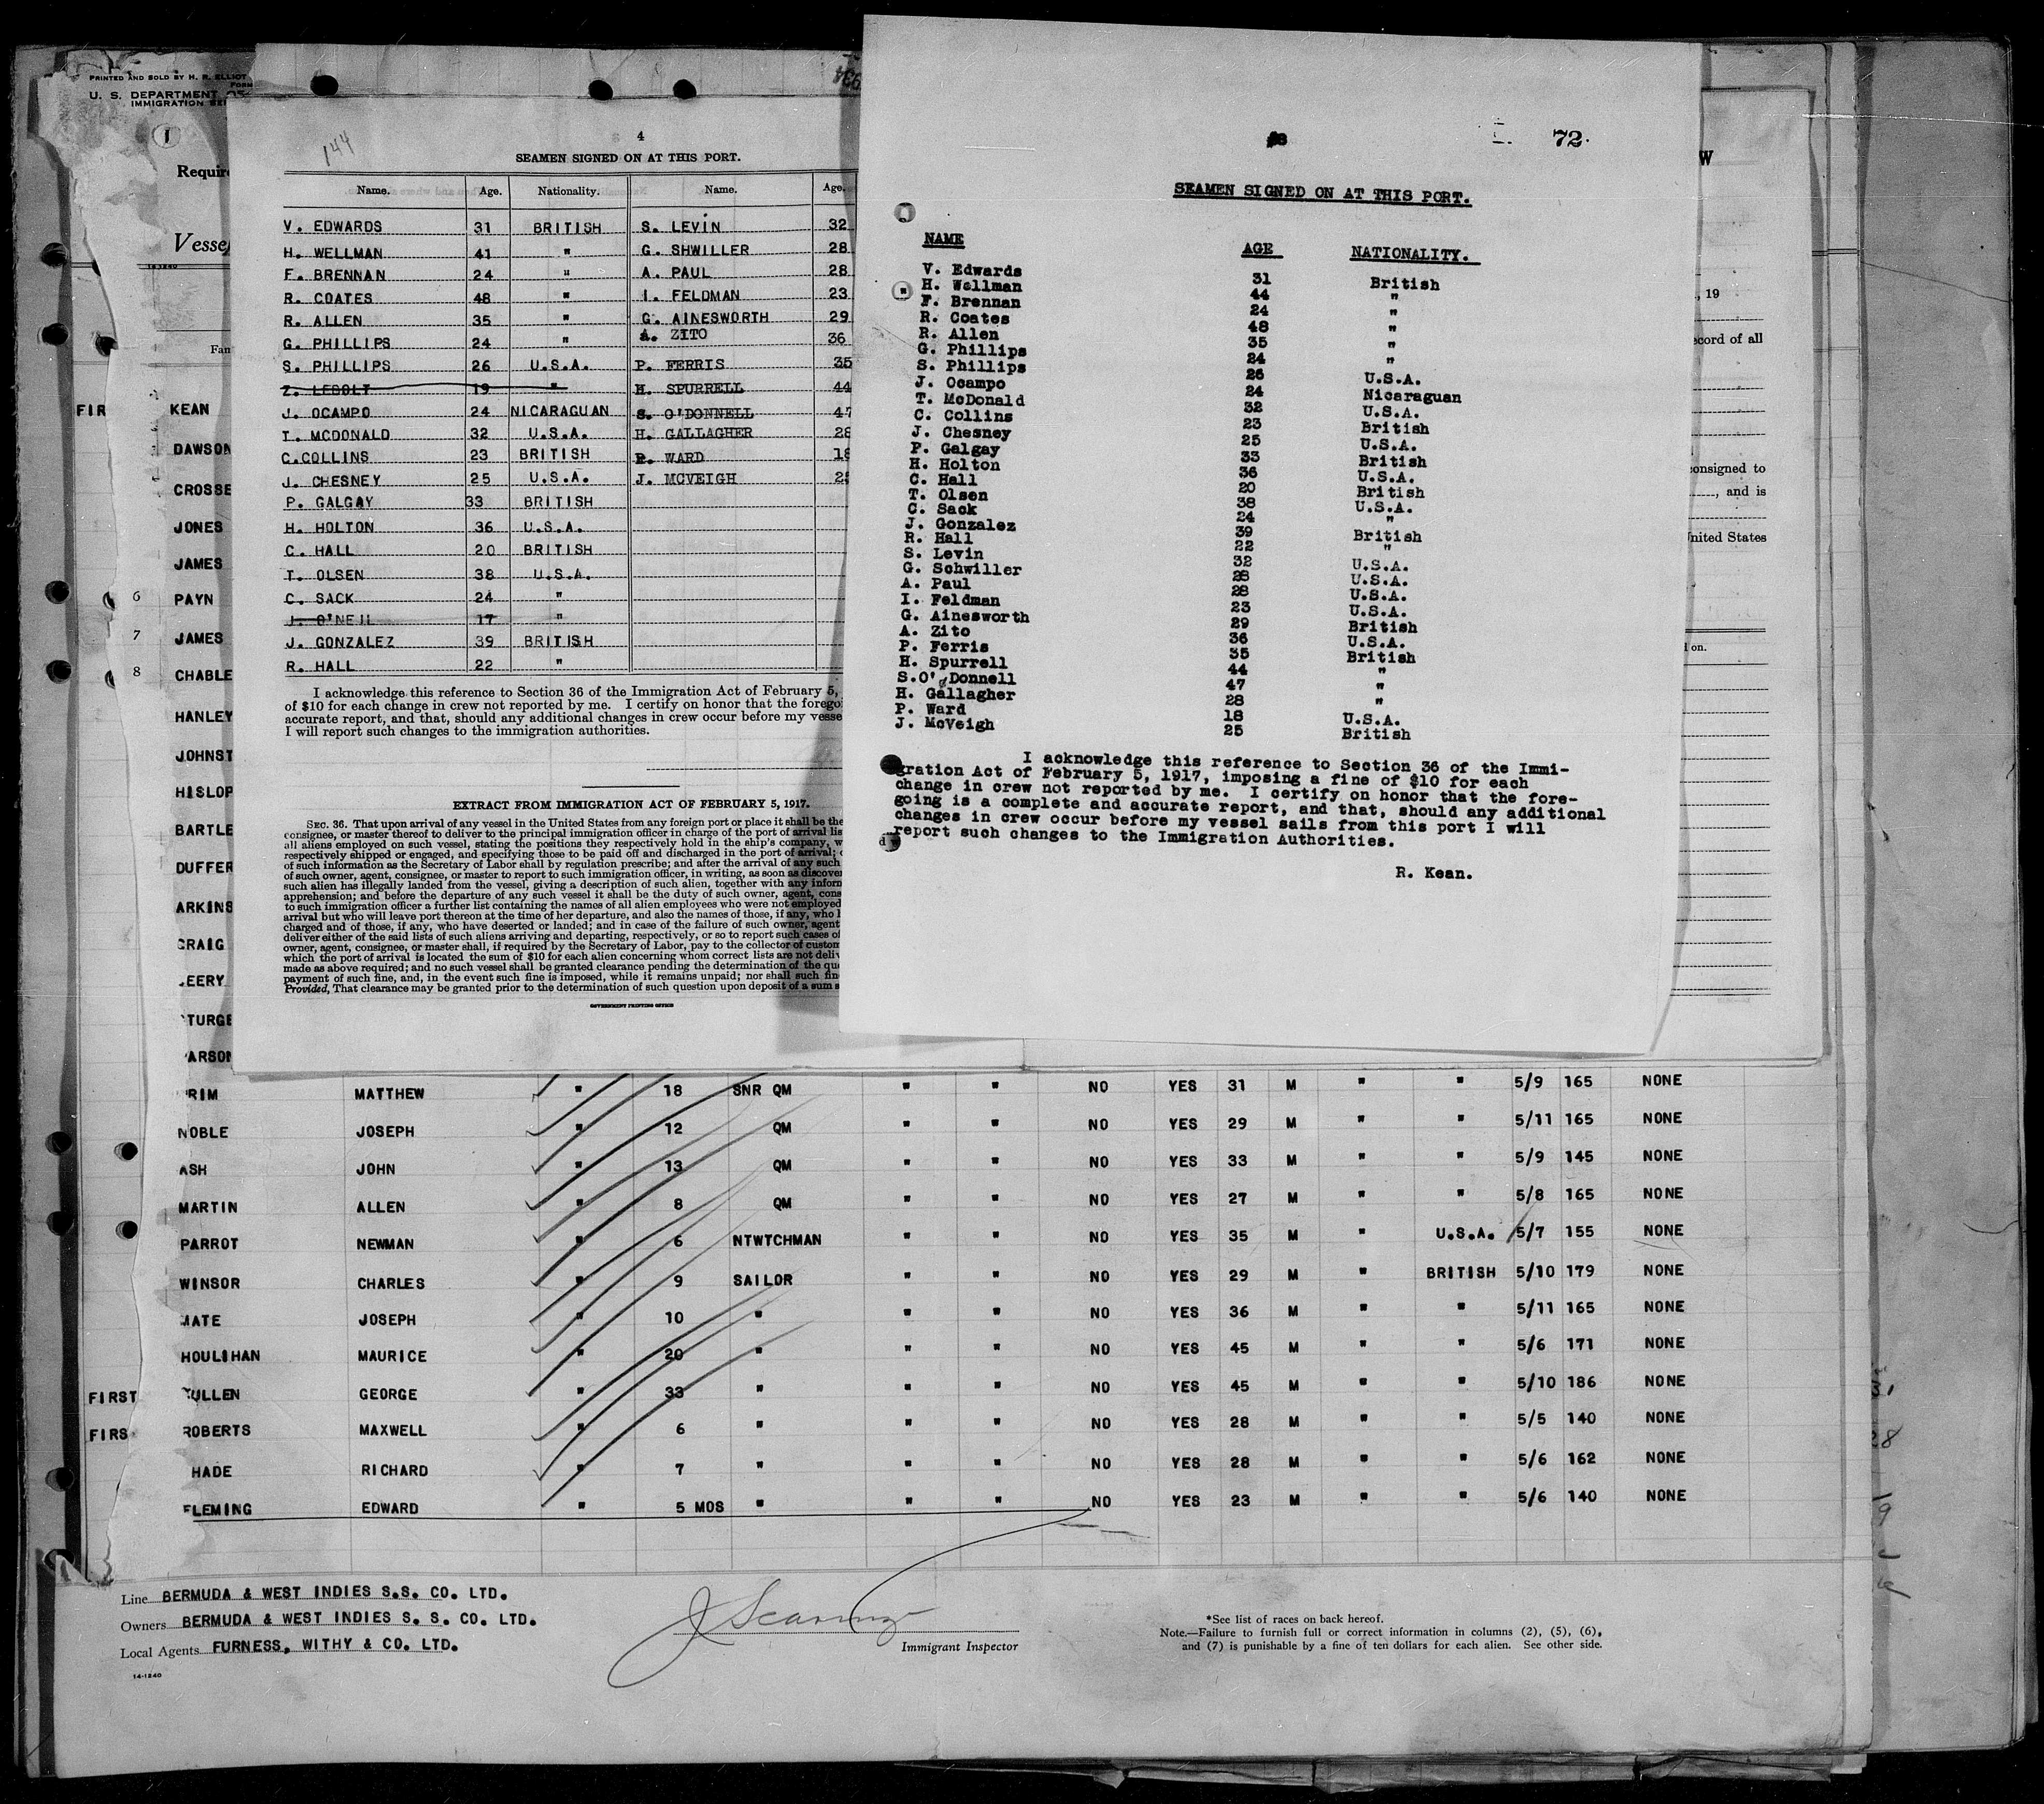 PRINTED AND SOLD BY H. R. ELLIOT
U. S. DEPARTMENT
IMMIGRATION
1
Require
Vessel
Fam
FIR KEAN
DAWSON
CROSSE
JONES
JAMES
6 PAYN
7 JAMES
8 CHABLE
HANLEY
JOHNST
HISLOP
BARTLE
DUFFER
ARKINS
CRAIG
EERY
TURGE
ARSON
144
4
SEAMEN SIGNED ON AT THIS PORT.
Name. Age. Nationality. Name. Age.
V. EDWARDS 31 BRITISH S. LEVIN 32
H. WELLMAN 41 " G. SHWILLER 28
F. BRENNAN 24 " A. PAUL 28
R. COATES 48 " I. FELDMAN 23
R. ALLEN 35 " G. AINESWORTH 29
G. PHILLIPS 24 " A. ZITO 36
S. PHILLIPS 26 U.S.A. P. FERRIS 35
Z. LEBOLT 19 " H. SPURRELL 44
J. OCAMPO 24 NICARAGUAN S. O'DONNELL 47
T. MCDONALD 32 U.S.A. H. GALLAGHER 28
C.COLLINS 23 BRITISH P. WARD 18
J. CHESNEY 25 U.S.A. J. MCVEIGH 25
P. GALGAY 33 BRITISH
H. HOLTON 36 U.S.A.
C. HALL 20 BRITISH
T. OLSEN 38 U.S.A.
C. SACK 24 "
J. O'NEIL 17 "
J. GONZALEZ 39 BRITISH
R. HALL 22 "
I acknowledge this reference to Section 36 of the Immigration Act of February 5,
of $10 for each change in crew not reported by me. I certify on honor that the forego
accurate report, and that, should any additional changes in crew occur before my vesse
I will report such changes to the immigration authorities.
EXTRACT FROM IMMIGRATION ACT OF FEBRUARY 5, 1917.
SEC. 36. That upon arrival of any vessel in the United States from any foreign port or place it shall be the
consignee, or master thereof to deliver to the principal immigration officer in charge of the port of arrival lis
all aliens employed on such vessel, stating the positions they respectively hold in the ship's company, w
respectively shipped or engaged, and specifying those to be paid off and discharged in the port of arrival;
of such information as the Secretary of Labor shall by regulation prescribe; and after the arrival of any such
of such owner, agent, consignee, or master to report to such immigration officer, in writing, as soon as discover
such alien has illegally landed from the vessel, giving a description of such alien, together with any inform
apprehension; and before the departure of any such vessel it shall be the duty of such owner, agent, cons
to such immigration officer a further list containing the names of all alien employees who were not employed
arrival but who will leave port thereon at the time of her departure, and also the names of those, if any, who
charged and of those, if any, who have deserted or landed; and in case of the failure of such owner, agent
deliver either of the said lists of such aliens arriving and departing, respectively, or so to report such cases of
owner, agent, consignee, or master shall, if required by the Secretary of Labor, pay to the collector of custom
which the port of arrival is located the sum of $10 for each alien concerning whom correct lists are not deliv
made as above required; and no such vessel shall be granted clearance pending the determination of the qu
payment of such fine, and, in the event such fine is imposed, while it remains unpaid; nor shall such fin
Provided, That clearance may be granted prior to the determination of such question upon deposit of a sum s
GOVERNMENT PRINTING OFFICE
72.
SEAMEN SIGNED ON AT THIS PORT.
NAME AGE NATIONALITY.
V. Edwards 31 British
H. Wellman 44 "
F. Brennan 24 "
R. Coates 48 "
R. Allen 35 "
G. Phillips 24 "
S. Phillips 26 U.S.A.
J. Ocampo 24 Nicaraguan
T. McDonald 32 U.S.A.
C. Collins 23 British
J. Chesney 25 U.S.A.
P. Galgay 33 British
H. Holton 36 U.S.A.
C. Hall 20 British
T. Olsen 38 U.S.A.
C. Sack 24 "
J. Gonzalez 39 British
R. Hall 22 "
S. Levin 32 U.S.A.
G. Schwiller 28 U.S.A.
A. Paul 28 U.S.A.
I. Feldman 23 U.S.A.
G. Ainesworth 29 British
A. Zito 36 U.S.A.
P. Ferris 35 British
H. Spurrell 44 "
S.O'Donnell 47 "
H. Gallagher 28 "
P. Ward 18 U.S.A.
J. McVeigh 25 British
I acknowledge this reference to Section 36 of the Immi-
gration Act of February 5, 1917, imposing a fine of $10 for each
change in crew not reported by me. I certify on honor that the fore-
going is a complete and accurate report, and that, should any additional
changes in crew occur before my vessel sails from this port I will
report such changes to the Immigration Authorities.
R. Kean.
W
, 19
ecord of all
onsigned to
, and is
United States
on.
RIM MATTHEW " 18 SNR QM " " NO YES 31 M " " 5/9 165 NONE
NOBLE JOSEPH " 12 QM " " NO YES 29 M " " 5/11 165 NONE
ASH JOHN " 13 QM " " NO YES 33 M " " 5/9 145 NONE
MARTIN ALLEN " 8 QM " " NO YES 27 M " " 5/8 165 NONE
PARROT NEWMAN " 6 NTWTCHMAN " " NO YES 35 M " U.S.A. 5/7 155 NONE
WINSOR CHARLES " 9 SAILOR " " NO YES 29 M " BRITISH 5/10 179 NONE
MATE JOSEPH " 10 " " " NO YES 36 M " " 5/11 165 NONE
HOULIHAN MAURICE " 20 " " " NO YES 45 M " " 5/6 171 NONE
FIRST ULLEN GEORGE " 33 " " " NO YES 45 M " " 5/10 186 NONE
FIRS ROBERTS MAXWELL " 6 " " " NO YES 28 M " " 5/5 140 NONE
HADE RICHARD " 7 " " " NO YES 28 M " " 5/6 162 NONE
FLEMING EDWARD " 5 MOS " " " NO YES 23 M " " 5/6 140 NONE
Line BERMUDA & WEST INDIES S.S. CO. LTD.
Owners BERMUDA & WEST INDIES S. S. CO. LTD.
Local Agents FURNESS, WITHY & CO. LTD.
14-1240
Immigrant Inspector
*See list of races on back hereof.
Note.—Failure to furnish full or correct information in columns (2), (5), (6),
and (7) is punishable by a fine of ten dollars for each alien. See other side.